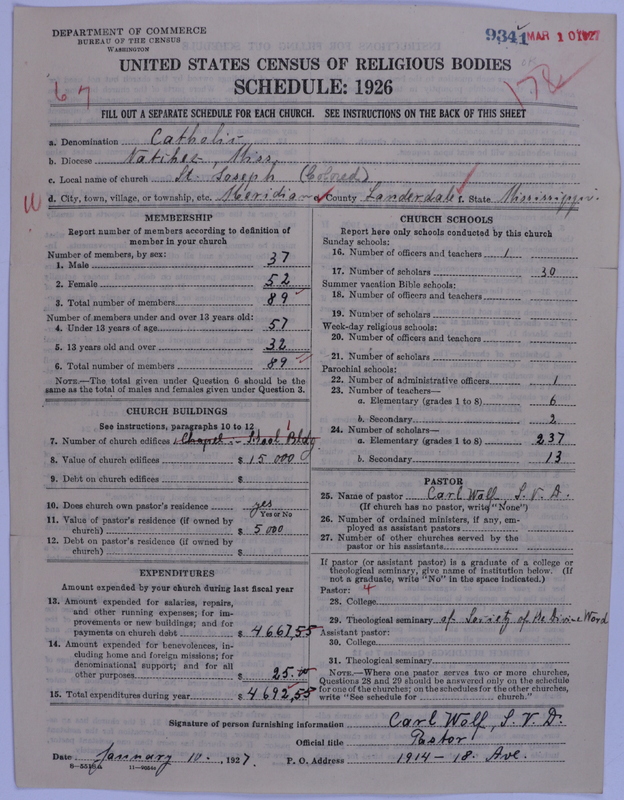 DEPARTMENT OF COMMERCE
BUREAU OF THE CENSUS
WASHINGTON
9341 MAR 10 1927
UNITED STATES CENSUS OF RELIGIOUS BODIES
SCHEDULE: 1926
67
178
FILL OUT A SEPARATE SCHEDULE FOR EACH CHURCH. SEE INSTRUCTIONS ON THE BACK OF THIS SHEET
a. Denomination Catholic
b. Diocese Natchez, Miss.
c. Local name of church St. Joseph (Colored)
d. City, town, village, or township, etc. Meridian e. County Lauderdale f. State Mississippi.
MEMBERSHIP
Report number of members according to definition of
member in your church
Number of members, by sex:
1. Male 37
2. Female 52
3. Total number of members 89
Number of members under and over 13 years old:
4. Under 13 years of age 57
5. 13 years old and over 32
6. Total number of members 89
NOTE.—The total given under Question 6 should be the
same as the total of males and females given under Question 3.
CHURCH BUILDINGS
See instructions, paragraphs 10 to 12
7. Number of church edifices 1 Chapel - School Bldg
8. Value of church edifices $ 15 000
9. Debt on church edifices $
10. Does church own pastor's residence yes
Yes or No
11. Value of pastor's residence (if owned by
church) $ 5 000
12. Debt on pastor's residence (if owned by
church) $
EXPENDITURES
Amount expended by your church during last fiscal year
13. Amount expended for salaries, repairs,
and other running expenses; for im-
provements or new buildings; and for
payments on church debt $ 4667,55
14. Amount expended for benevolences, in-
cluding home and foreign missions; for
denominational support; and for all
other purposes $ 25.00
15. Total expenditures during year $ 4692,55
CHURCH SCHOOLS
Report here only schools conducted by this church
Sunday schools:
16. Number of officers and teachers 1
17. Number of scholars 30
Summer vacation Bible schools:
18. Number of officers and teachers
19. Number of scholars
Week-day religious schools:
20. Number of officers and teachers
21. Number of scholars
Parochial schools:
22. Number of administrative officers 1
23. Number of teachers—
a. Elementary (grades 1 to 8) 6
b. Secondary 2
24. Number of scholars—
a. Elementary (grades 1 to 8) 237
b. Secondary 13
PASTOR
25. Name of pastor Carl Wolf, S. V. D.
(If church has no pastor, write "None")
26. Number of ordained ministers, if any, em-
ployed as assistant pastors
27. Number of other churches served by the
pastor or his assistants
If pastor (or assistant pastor) is a graduate of a college or
theological seminary, give name of institution below. (If
not a graduate, write "No" in the space indicated.)
Pastor: 4
28. College
29. Theological seminary of Society of the Divine Word
Assistant pastor:
30. College
31. Theological seminary
NOTE.—Where one pastor serves two or more churches,
Questions 28 and 29 should be answered only on the schedule
for one of the churches; on the schedules for the other churches,
write "See schedule for church."
Signature of person furnishing information Carl Wolf, S. V. D.
Official title Pastor
Date January 10. , 1927. P. O. Address 1914 - 18. Ave.